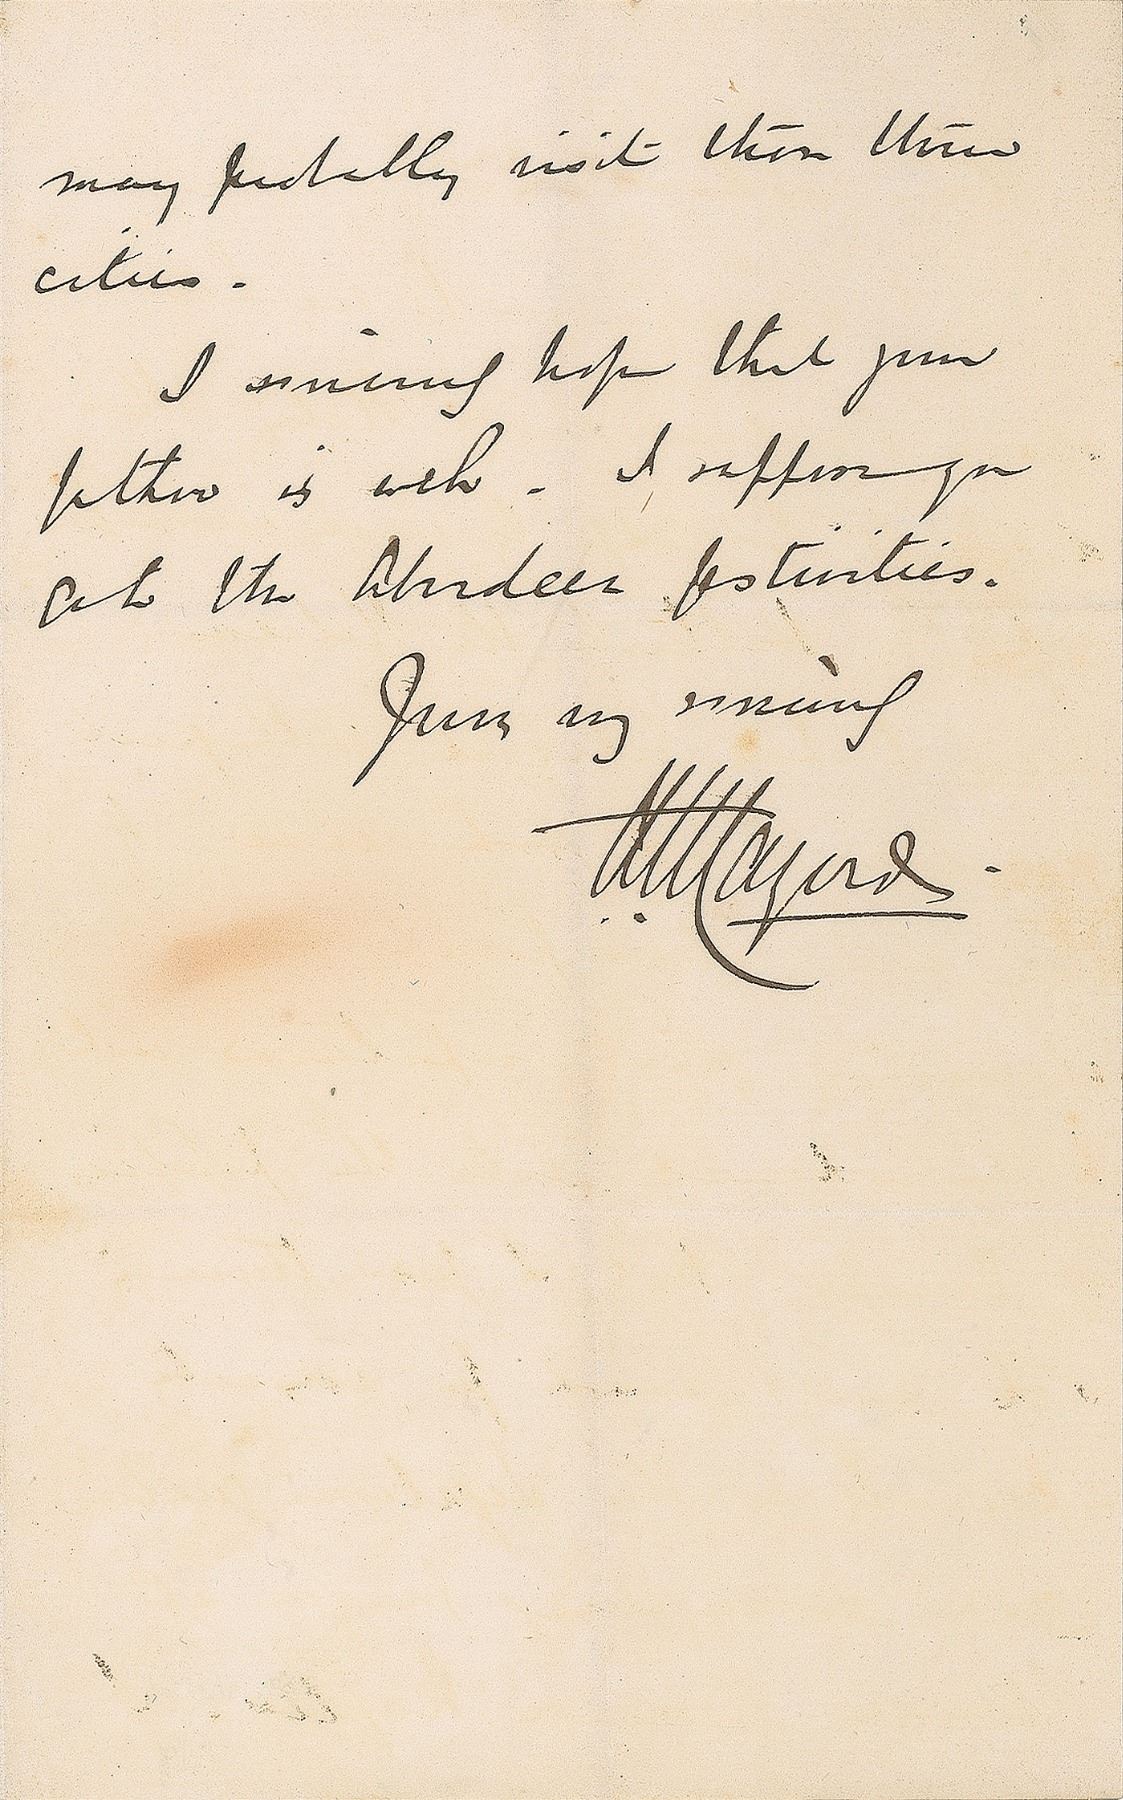 may probably visit these three
cities.
I sincerely hope that your
father is well. I suppose you
the Aberdeen festivities.
Yours very sincerely